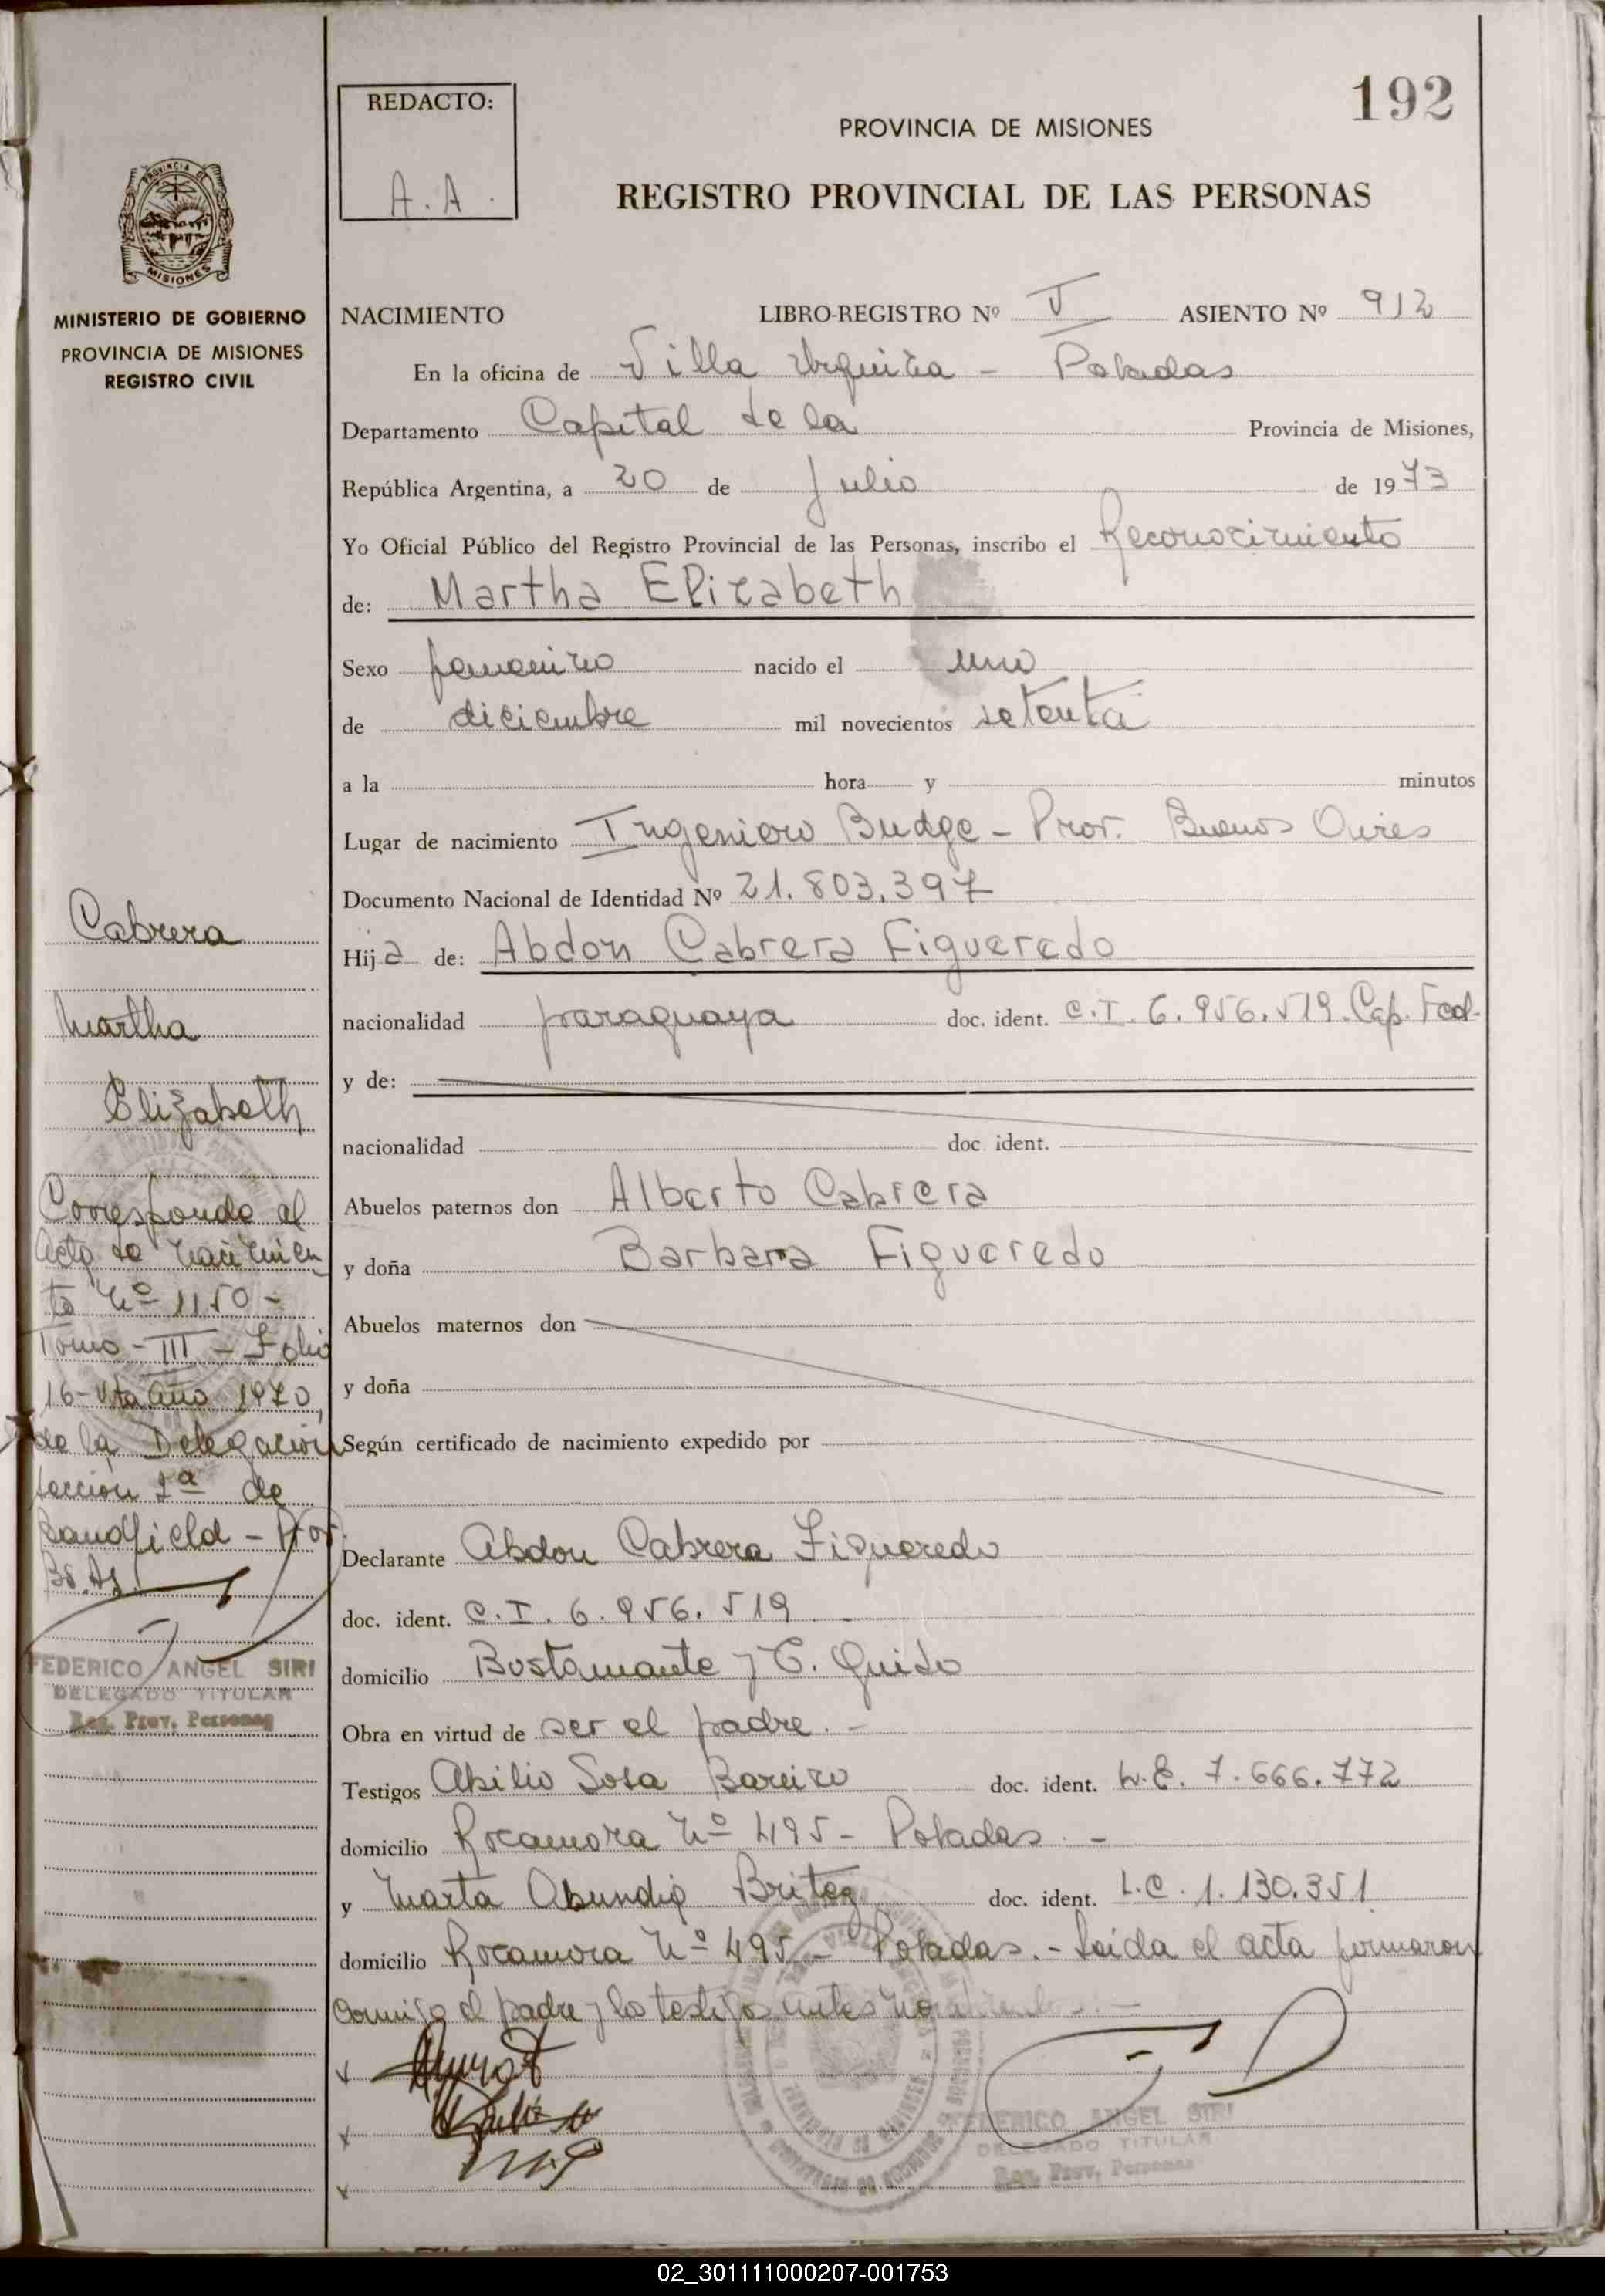 192
REDACTO:
A.A.
PROVINCIA DE MISIONES
REGISTRO PROVINCIAL DE LAS PERSONAS
PROVINCIA DE
MISIONES
MINISTERIO DE GOBIERNO
PROVINCIA DE MISIONES
REGISTRO CIVIL
NACIMIENTO LIBRO-REGISTRO Nº V ASIENTO Nº 912
En la oficina de Villa Urquiza - Posadas
Departamento Capital de la Provincia de Misiones,
República Argentina, a 20 de Julio de 1973
Yo Oficial Público del Registro Provincial de las Personas, inscribo el Reconocimiento
de: Martha Elizabeth
Sexo femenino nacido el uno
de diciembre mil novecientos setenta
a la hora y minutos
Lugar de nacimiento Ingeniero Budge - Prov. Buenos Aires
Documento Nacional de Identidad Nº 21.803.397
Hija de: Abdon Cabrera Figueredo
nacionalidad paraguaya doc. ident. C.I. 6.956.519. Cap. Fed.
y de:
nacionalidad doc. ident.
Abuelos paternos don Alberto Cabrera
y doña Barbara Figueredo
Abuelos maternos don
y doña
Según certificado de nacimiento expedido por
Declarante Abdon Cabrera Figueredo
doc. ident. C.I. 6.956.519.-
domicilio Bustamante y T. Guido
Obra en virtud de ser el padre.-
Testigos Abilio Sosa Bareiro doc. ident. L.E. 7.666.772
domicilio Rocamora Nº 495 - Posadas.-
y Marta Abundia Britez doc. ident. L.C. 1.130.351
domicilio Rocamora Nº 495 - Posadas.- Leida el acta firmaron
conmigo el padre y los testigos antes
FEDERICO ANGEL SIRI
DELEGADO TITULAR
Reg. Prov. Personas
Cabrera
Martha
Elizabeth
Corresponde al
acta de nacimien
to Nº 1150 -
Tomo - III - Folio
16 - Vta año 1970,
de la Delegacion
seccion 2ª de
Bandfield - Prov.
Bs. As.
FEDERICO ANGEL SIRI
DELEGADO TITULAR
Reg. Prov. Personas
02_301111000207-001753